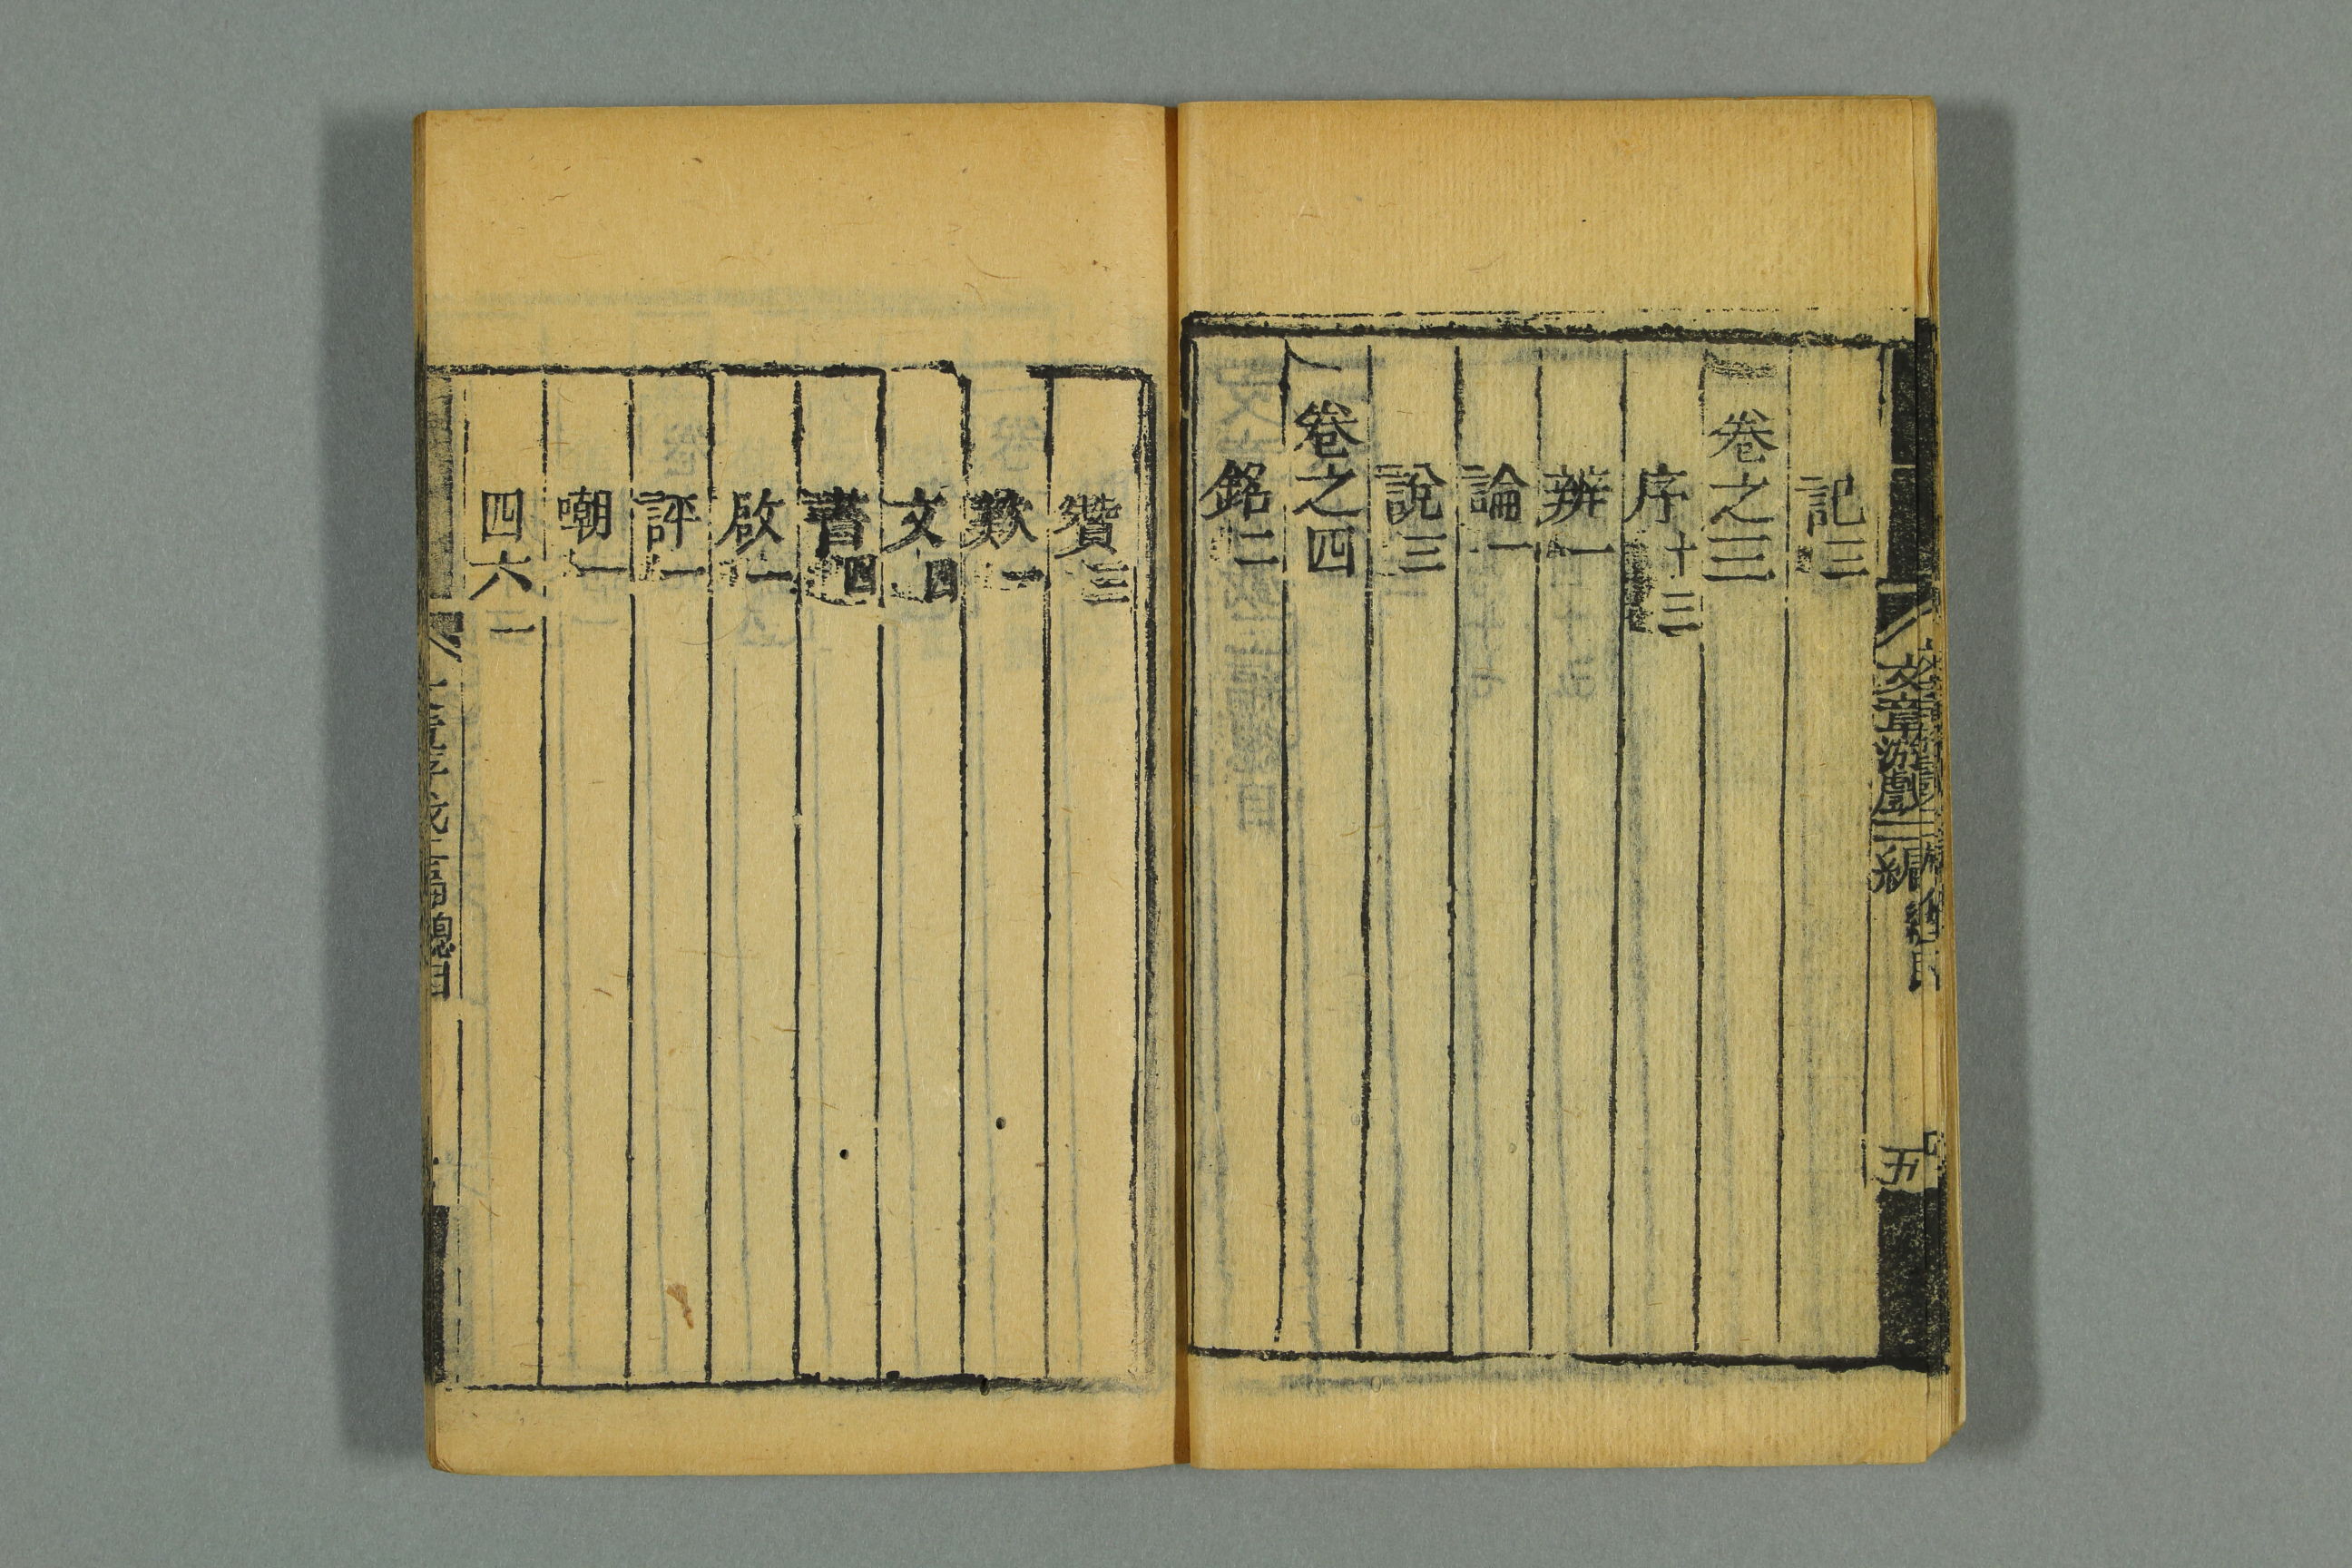 記三
卷之三
序十三
辨一
論一
說三
卷之四
銘二
贊三
歎一
文四
書四
啟一
評一
嘲一
四六一
文章游戲二編
五
總目